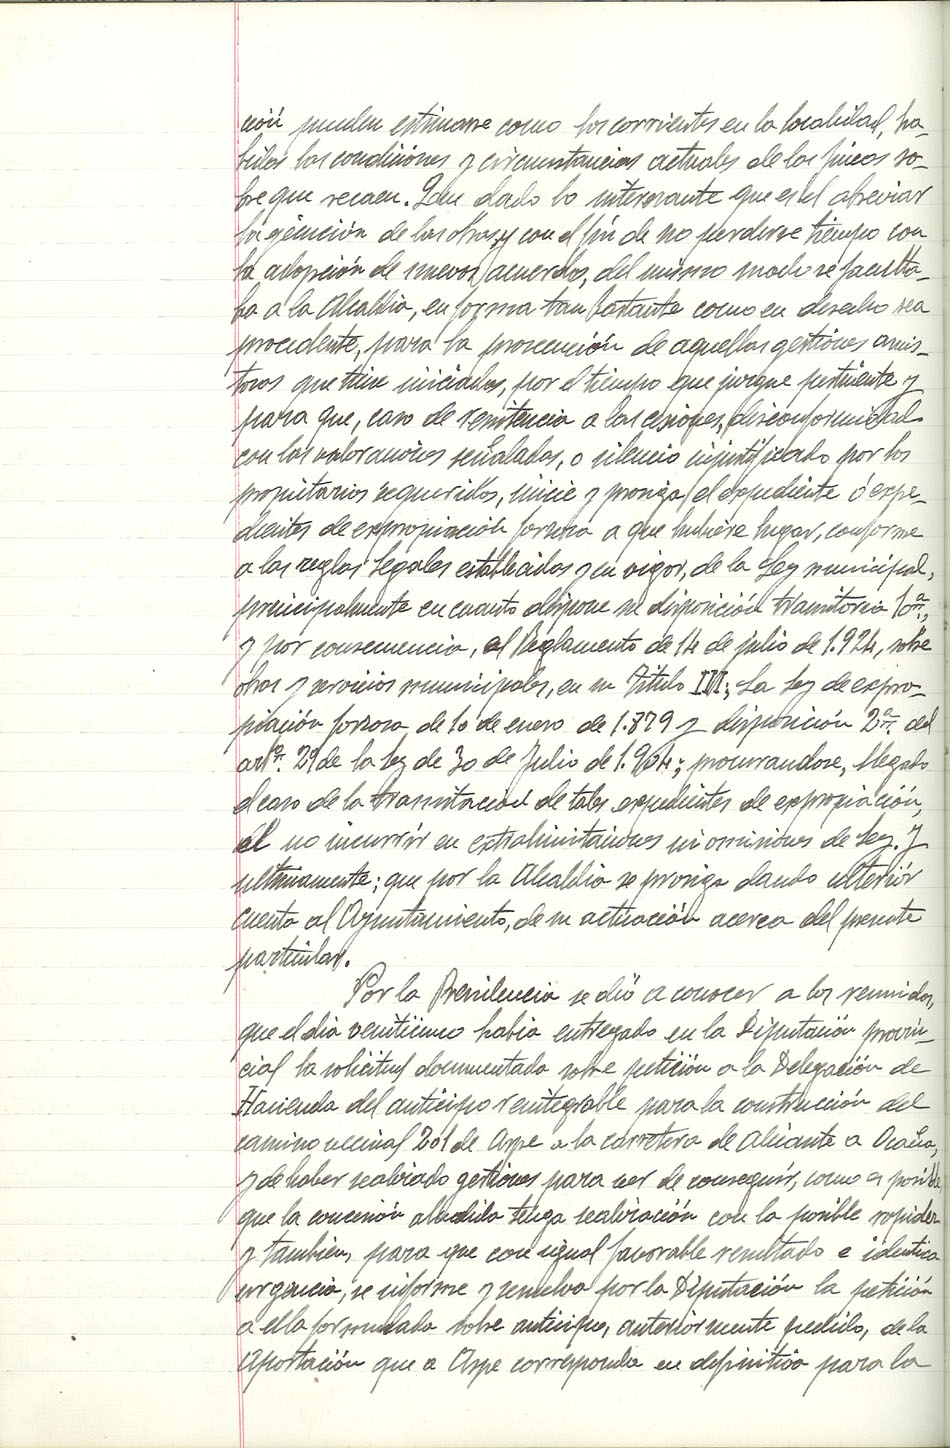 ción pueden estimarse como los corrientes en la localidad, ha-
bidas las condiciones y circunstancias actuales de las fincas so-
bre que recaen. Que dado lo interesante que es el abreviar
la ejecución de las obras, y con el fin de no perderse tiempo con
la adopción de nuevos acuerdos, del mismo modo se faculta-
ba a la Alcaldia, en forma tan bastante como en derecho sea
procedente, para la prosecución de aquellas gestiones amis-
tosas que tiene iniciadas, por el tiempo que juzgue pertinente y
para que, caso de resistencia a las cesiones, disconformidad
con las valoraciones señaladas, o silencio injustificado por los
propietarios requeridos, inicie y prosiga el expediente ó expe-
dientes de expropiación forzosa a que hubiere lugar, conforme
a las reglas legales establecidas y en vigor, de la Ley municipal,
principalmente en cuanto dispone su disposición transitoria 10ª.,
y por consecuencia, al Reglamento de 14 de julio de 1.924, sobre
obras y servicios municipales, en su Título III; La Ley de expro-
piación forzosa de 10 de enero de 1.879 y disposición 2ª. del
artº. 29 de la Ley de 30 de Julio de 1.904; procurandose, llegado
el caso de la tramitación de tales expedientes de expropiación,
el no incurrir en extralimitaciones ni omisiones de Ley. Y
ultimamente; que por la Alcaldia se prosiga dando ulteriór
cuenta al Ayuntamiento, de su actuación acerca del presente
particular.
Por la Presidencia se dió a conocer a los reunidos,
que el dia veintiuno habia entregado en la Diputación provin-
cial la solicitud documentada sobre petición a la Delegación de
Hacienda del anticipo reintegrable para la construcción del
camino vecinal 201 de Aspe a la carretera de Alicante a Ocaña,
y de haber realizado gestiones para ver de conseguir, como es posible
que la concesión aludida tenga realización con la posible rapidez
y tambien, para que con igual favorable resultado e identica
urgencia, se informe y resuelva por la Diputación la petición
a ella formulada sobre anticipo, anteriormente pedido, de la
Aportación que a Aspe corresponda en definitiva para la